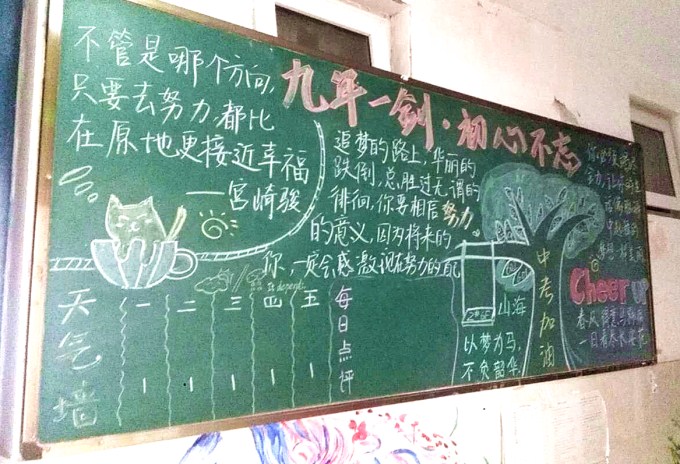 九年一剑·初心不忘
不管是哪个方向,
只要去努力,都比
在原地更接近幸福
——宫崎骏
追梦的路上,华丽的
跌倒,总胜过无谓的
徘徊,你要相信努力
的意义,因为将来的
你,一定会感激现在努力的自己
Cheer up
春风得意马蹄疾
一日看尽长安花
中考加油
山海
以梦为马,
不负韶华
天气墙
一 二 三 四 五
It depends.
每日点评